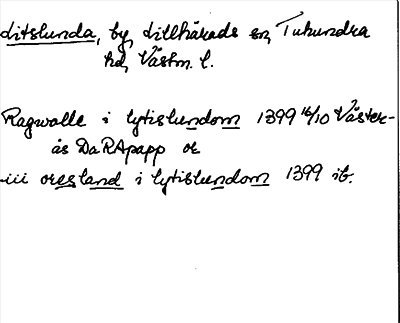 Litslunda, by, Lillhärads sn, Tuhundra
hd, Västm. l.
Ragwalle i lytislundom 1399 16/10 Väster-
ås DaRApapp or
iii oresland i lytislundom 1399 ib.